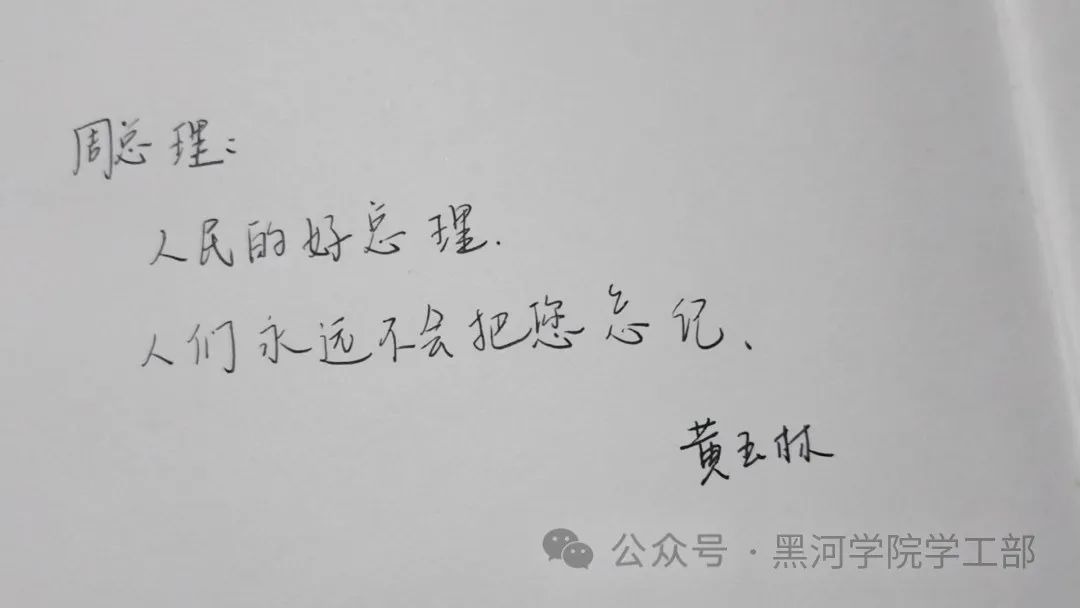 周总理：
人民的好总理.
人们永远不会把您忘记、
黄玉林
公众号 · 黑河学院学工部